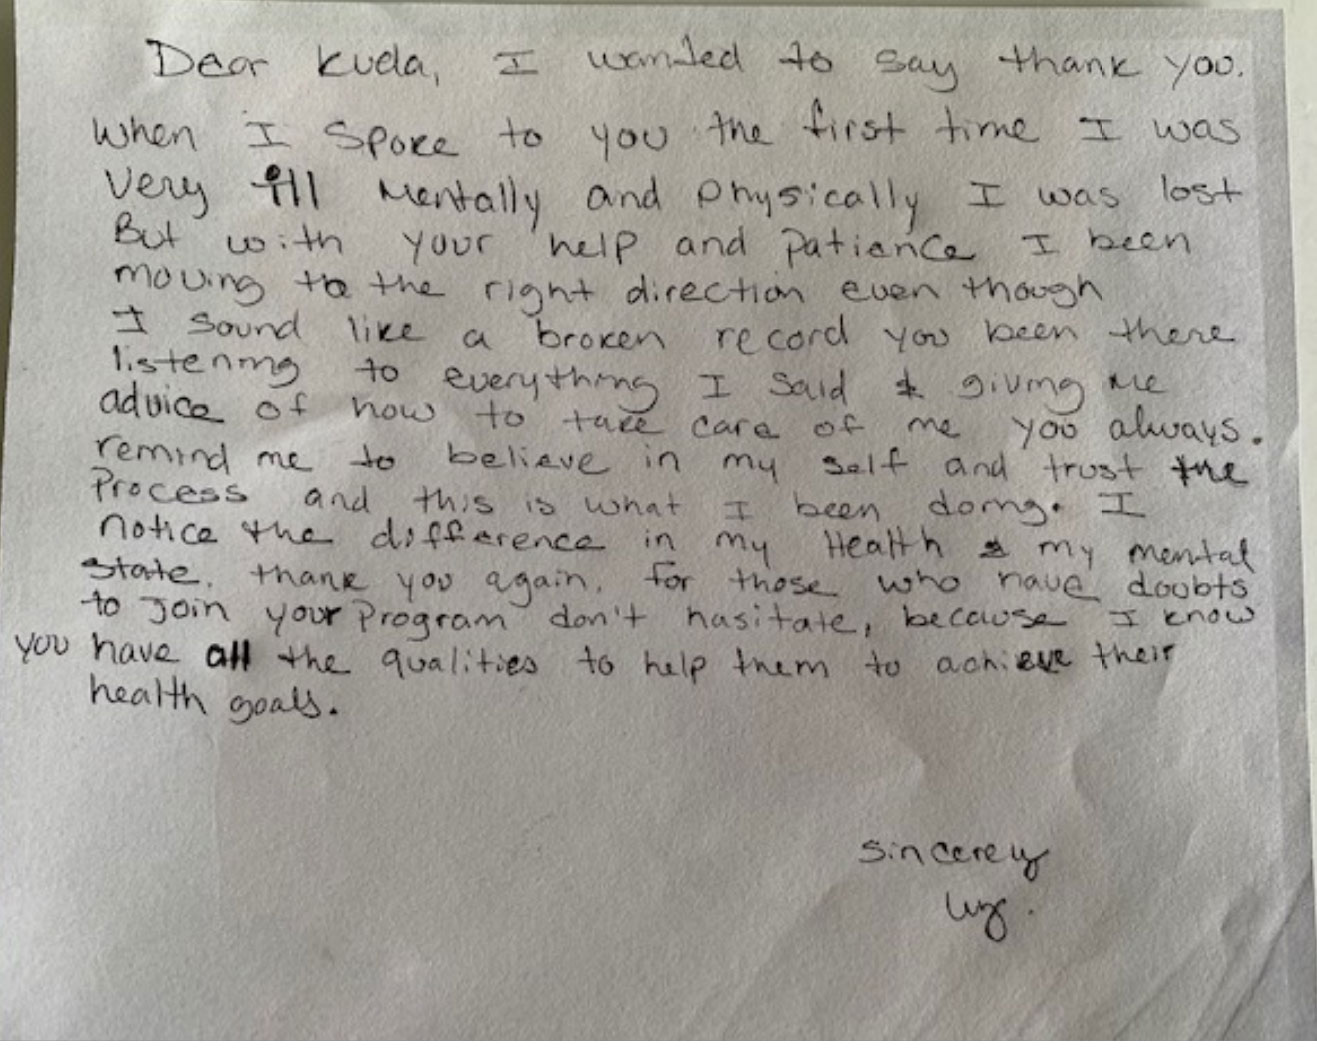 Dear Kuda, I wanted to say thank you.
When I spoke to you the first time I was
very ill mentally and physically I was lost
But with your help and patience I been
moving to the right direction even though
I sound like a broken record you been there
listening to everything I said & giving me
advice of how to take care of me you always.
remind me to believe in my self and trust the
Process and this is what I been doing. I
notice the difference in my Health & my mental
state. thank you again. for those who have doubts
to join your program don't hasitate, because I know
you have all the qualities to help them to achieve their
health goals.
sincerey
Luz.